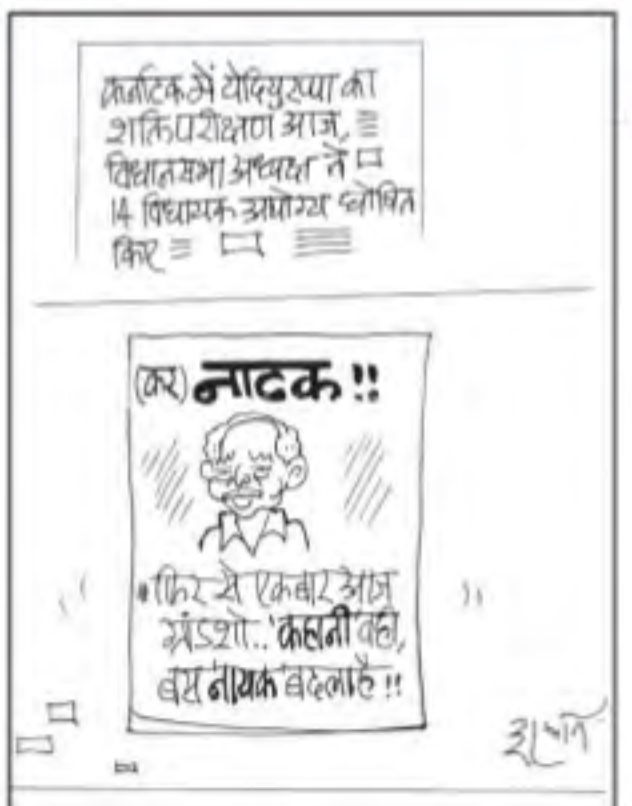 कर्नाटक में येदियुरप्पा का
शक्ति परीक्षण आज,
विधानसभा अध्यक्ष ने
14 विधायक अयोग्य घोषित
किए
(कर) नाटक !!
फिर से एकबार आज
ग्रँडशो.. 'कहानी' वही,
बस 'नायक' बदला है !!